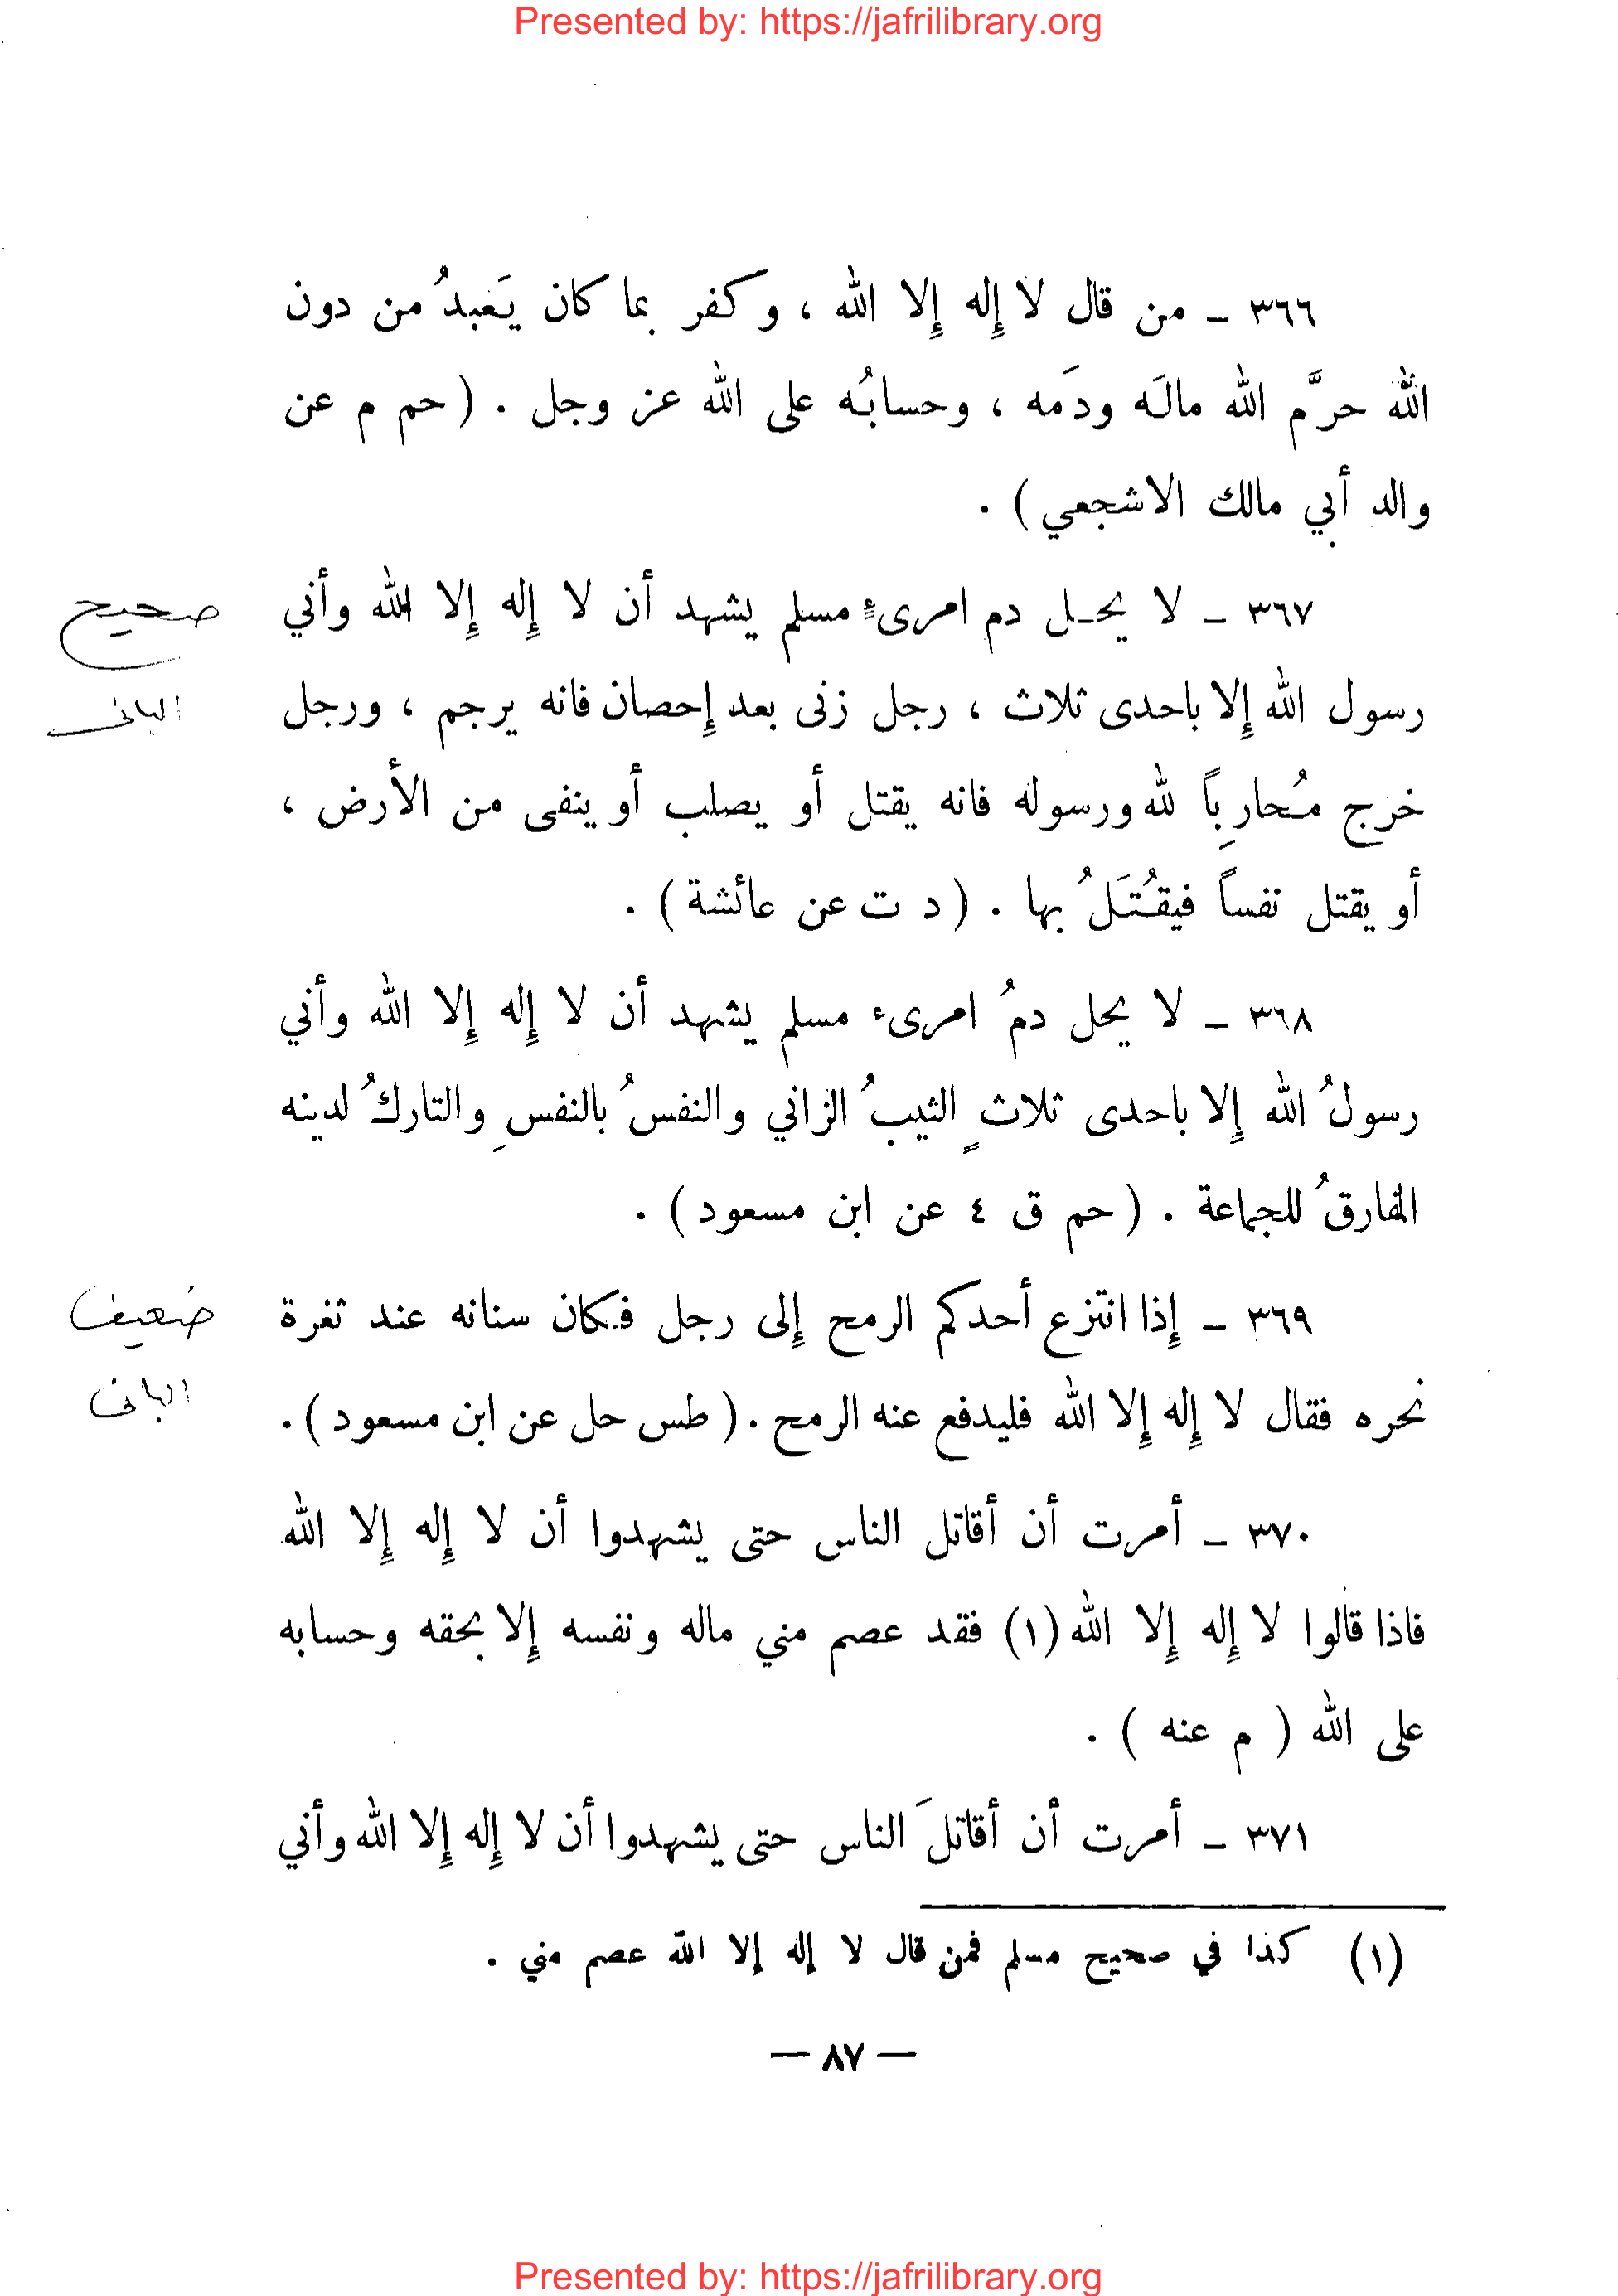 Presented by: https://jafrilibrary.org
٣٦٦ ـ من قال لا إله إلا الله ، وكفر بما كان يَعبدُ من دون
الله حرَّم الله مالَه ودَمه ، وحسابُه على الله عز وجل . ( حم م عن
والد أبي مالك الاشجعي ) .
٣٦٧ ـ لا يحـل دم امرىءٍ مسلم يشهد أن لا إله إلا الله وأني
صحيح
رسول الله إلا باحدى ثلاث ، رجل زنى بعد إحصان فانه يرجم ، ورجل
البانى
خرج مُحارِباً لله ورسوله فانه يقتل أو يصلب أو ينفى من الأرض ،
أو يقتل نفساً فيقُتَلُ بها . ( د ت عن عائشة ) .
٣٦٨ ـ لا يحل دمُ امرىء مسلم يشهد أن لا إله إلا الله وأني
رسولُ الله إلا باحدى ثلاثٍ الثيبُ الزاني والنفسُ بالنفسِ والتاركُ لدينه
المفارقُ للجماعة . ( حم ق ٤ عن ابن مسعود ) .
٣٦٩ ـ إذا انتزع أحدكم الرمح إلى رجل فكان سنانه عند ثغرة
ضعيف
نحره فقال لا إله إلا الله فليدفع عنه الرمح . ( طس حل عن ابن مسعود ) .
البانى
٣٧٠ ـ أمرت أن أقاتل الناس حتى يشهدوا أن لا إله إلا الله
فاذا قالوا لا إله إلا الله (١) فقد عصم مني ماله ونفسه إلا بحقه وحسابه
على الله ( م عنه ) .
٣٧١ ـ أمرت أن أقاتلَ الناس حتى يشهدوا أن لا إله إلا الله وأني
(١) كذا في صحيح مسلم فمن قال لا إله إلا الله عصم مني .
— ٨٧ —
Presented by: https://jafrilibrary.org